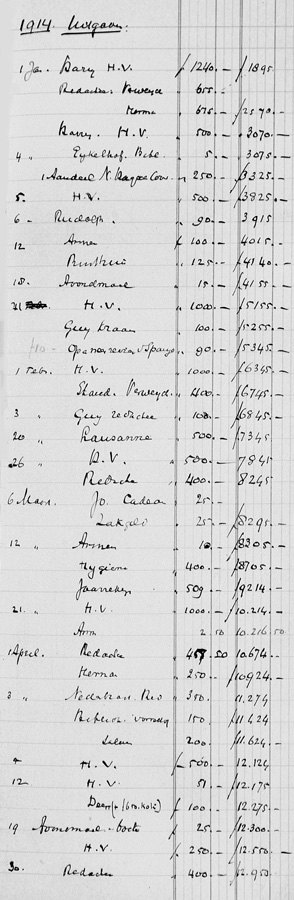 1914. Uitgaven.
1 Jan. Barry H.V. ƒ 1240.- ƒ 1895
Redactie Verweyd " 655.-
Herma " 675.- ƒ 2570.-
Barry. H.V. " 500.- 3070.-
4 " Eykelhof. Bibl. " 5.- 3075.-
1 Aandeel N. " 250.- ƒ 3325.-
5. H.V. " 500 ƒ 3825.-
6 " Rudolph. " 90.- 3915
12 Armen ƒ 100.- 4015.-
" 125.- ƒ 4140.-
18. Avondmaal " 15.- ƒ 4155.-
21 H.V. " 1000.- ƒ 5155.-
Guy " 100.- ƒ 5255.-
" 90.- ƒ 5345.-
1 Febr. H.V. " 1000.- ƒ 6345.-
Verweyd " 400.- ƒ 6745.-
3 " Guy redactie " 100.- ƒ 6845.-
20 " Lausanne " 500.- ƒ 7345
26 " H.V. " 500.- 7845
Redactie " 400.- 8245
6 Maart. Jo. Cadeau " 25.-
Zakgeld " 25.- ƒ 8295.-
12 " Armen " 10.- ƒ 8305.-
Hygiene " 400.- ƒ 8705.-
" 509.- ƒ 9214.-
21. " H.V. " 1000.- ƒ 10.214.-
Arm " 2.50 10.216.50
1 April. Redactie " 457.50 10.674.-
Herma " 250.- ƒ 10924.-
3 " " 350. 11.274
" 150. ƒ 11.424
" 200. ƒ 11.624.-
4 H.V. ƒ 500.- 12.124
12 H.V. " 51 ƒ 12.175
ƒ 100.- 12.275.-
19 Avondmaal " 25.- ƒ 12.300.-
H.V. ƒ 250.- ƒ 12.550.-
30. Redactie " 400.- ƒ 12.950.-